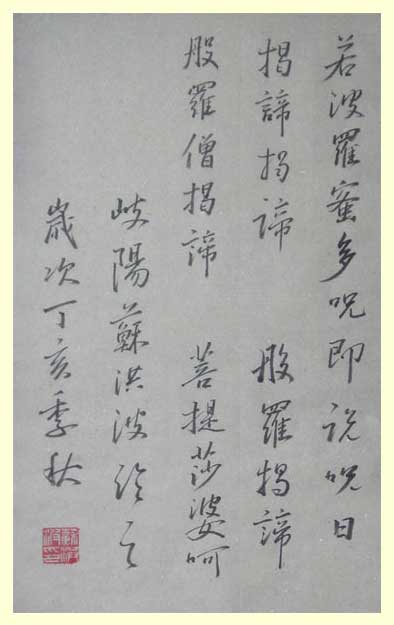 若波羅蜜多呪即说呪曰
揭諦揭諦 般羅揭諦
般羅僧揭諦 菩提莎婆呵
岐陽蘇洪波
歲次丁亥季秋